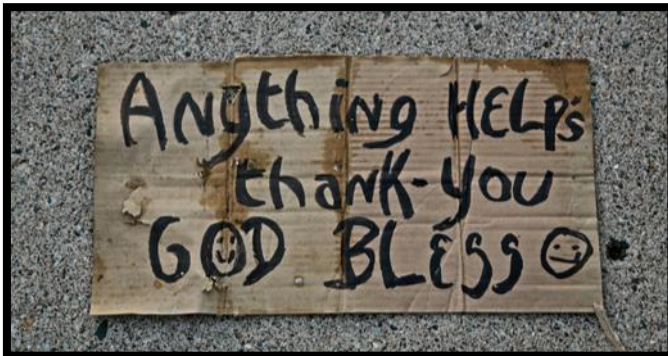 Anything HELP's
thank-you
GOD BLESS